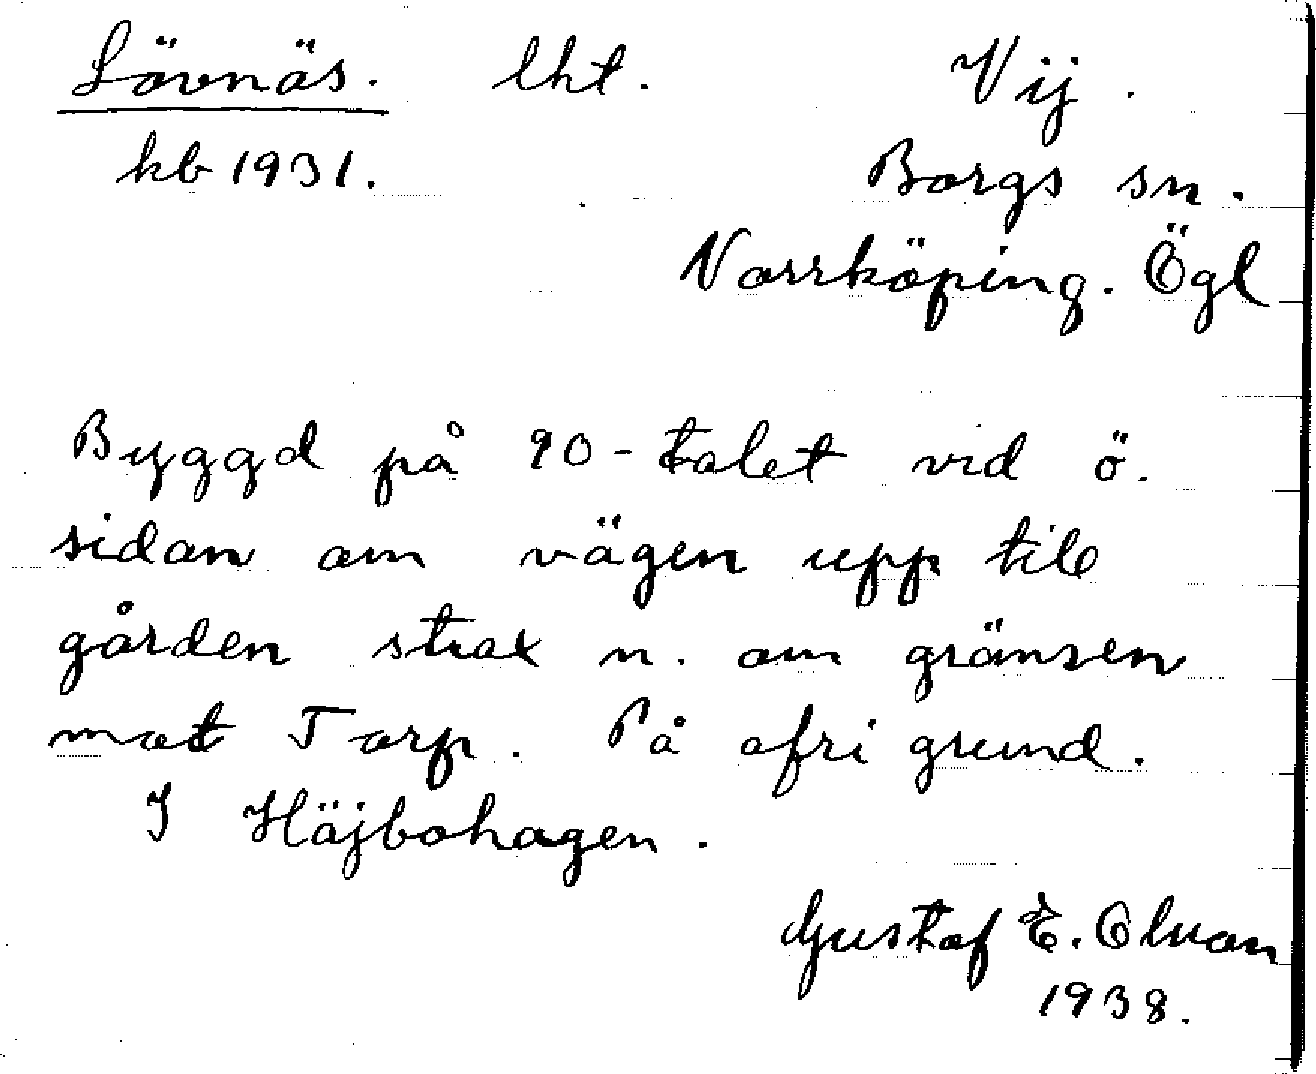 Lövnäs. lht. Vij.
kb 1931. Borgs sn.
Norrköping. Ögl
Byggd på 90-talet vid ö.
sidan om vägen upp till
gården strax n. om gränsen
mot Torp. På ofri grund.
I Höjbohagen.
Gustaf E.
1938.